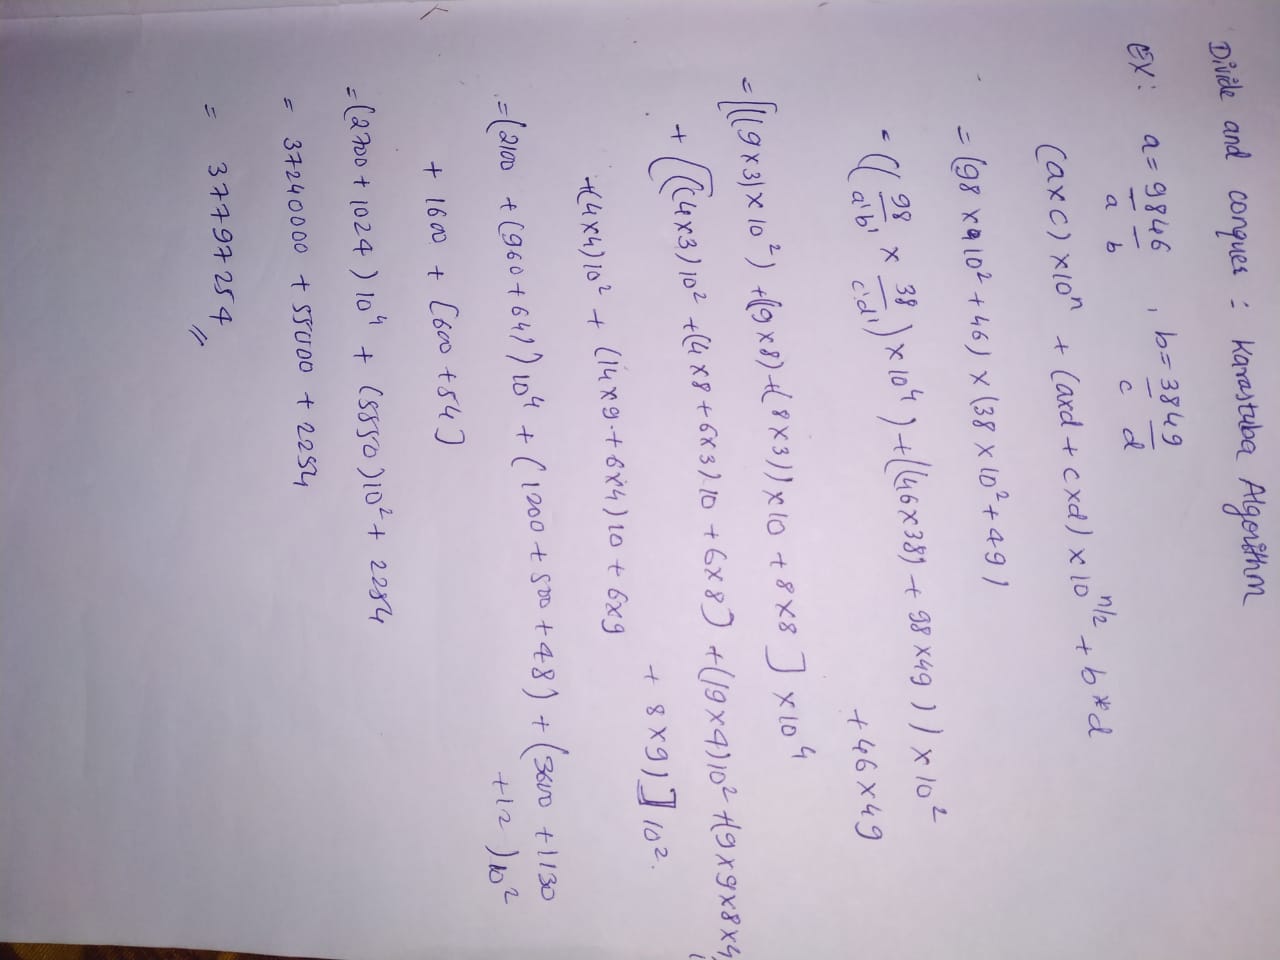 Divide and conquer : Karastuba Algorithm
EX: a = 9846 , b = 3849
a b c d
(axc) x 10^n + (axd + cxd) x 10^n/2 + b*d
= (98 x 10^2 + 46) x (38 x 10^2 + 49)
= ((98 x 38) x 10^4) + ((46x38) + 98x49)) x 10^2
a'b' c'd' + 46 x 49
= [((9x3) x 10^2) + ((9x8) + (8x3)) x 10 + 8x8] x 10^4
+ [((4x3) 10^2 + (4x8 + 6x3) 10 + 6x8) + ((9x4) 10^2 + (9x9x8x4)
+ 8x9)] 10^2.
+(4x4) 10^2 + (14x9 + 6x4) 10 + 6x9
= (2100 + (960 + 64)) 10^4 + (1200 + 500 + 48) + (3600 + 1130
+12) 10^2
+ 1600 + (600 + 54)
= (2700 + 1024) 10^4 + (5550) 10^2 + 2254
= 37240000 + 55000 + 2254
= 37797254 //